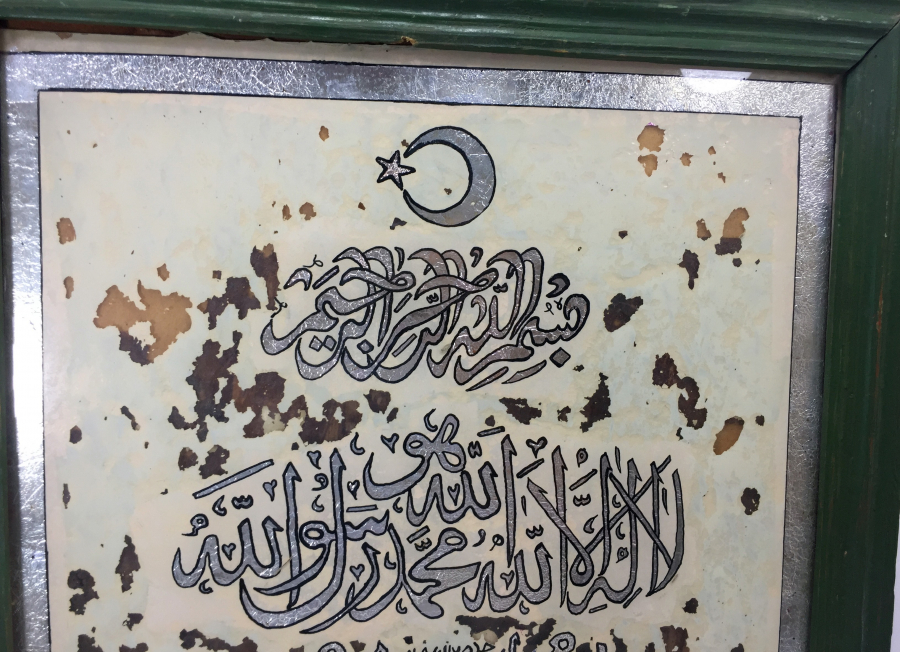 بسم الله الرحمن الرحيم
هو الله
لا اله الا الله محمد رسول الله